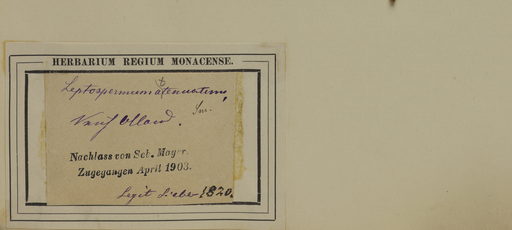 HERBARIUM REGIUM MONACENSE.
Leptospermum attenuatum,
Sm.
Neuholland.
Nachlass von Seb. Mayer.
Zugegangen April 1903.
Legit Sieber 1820.